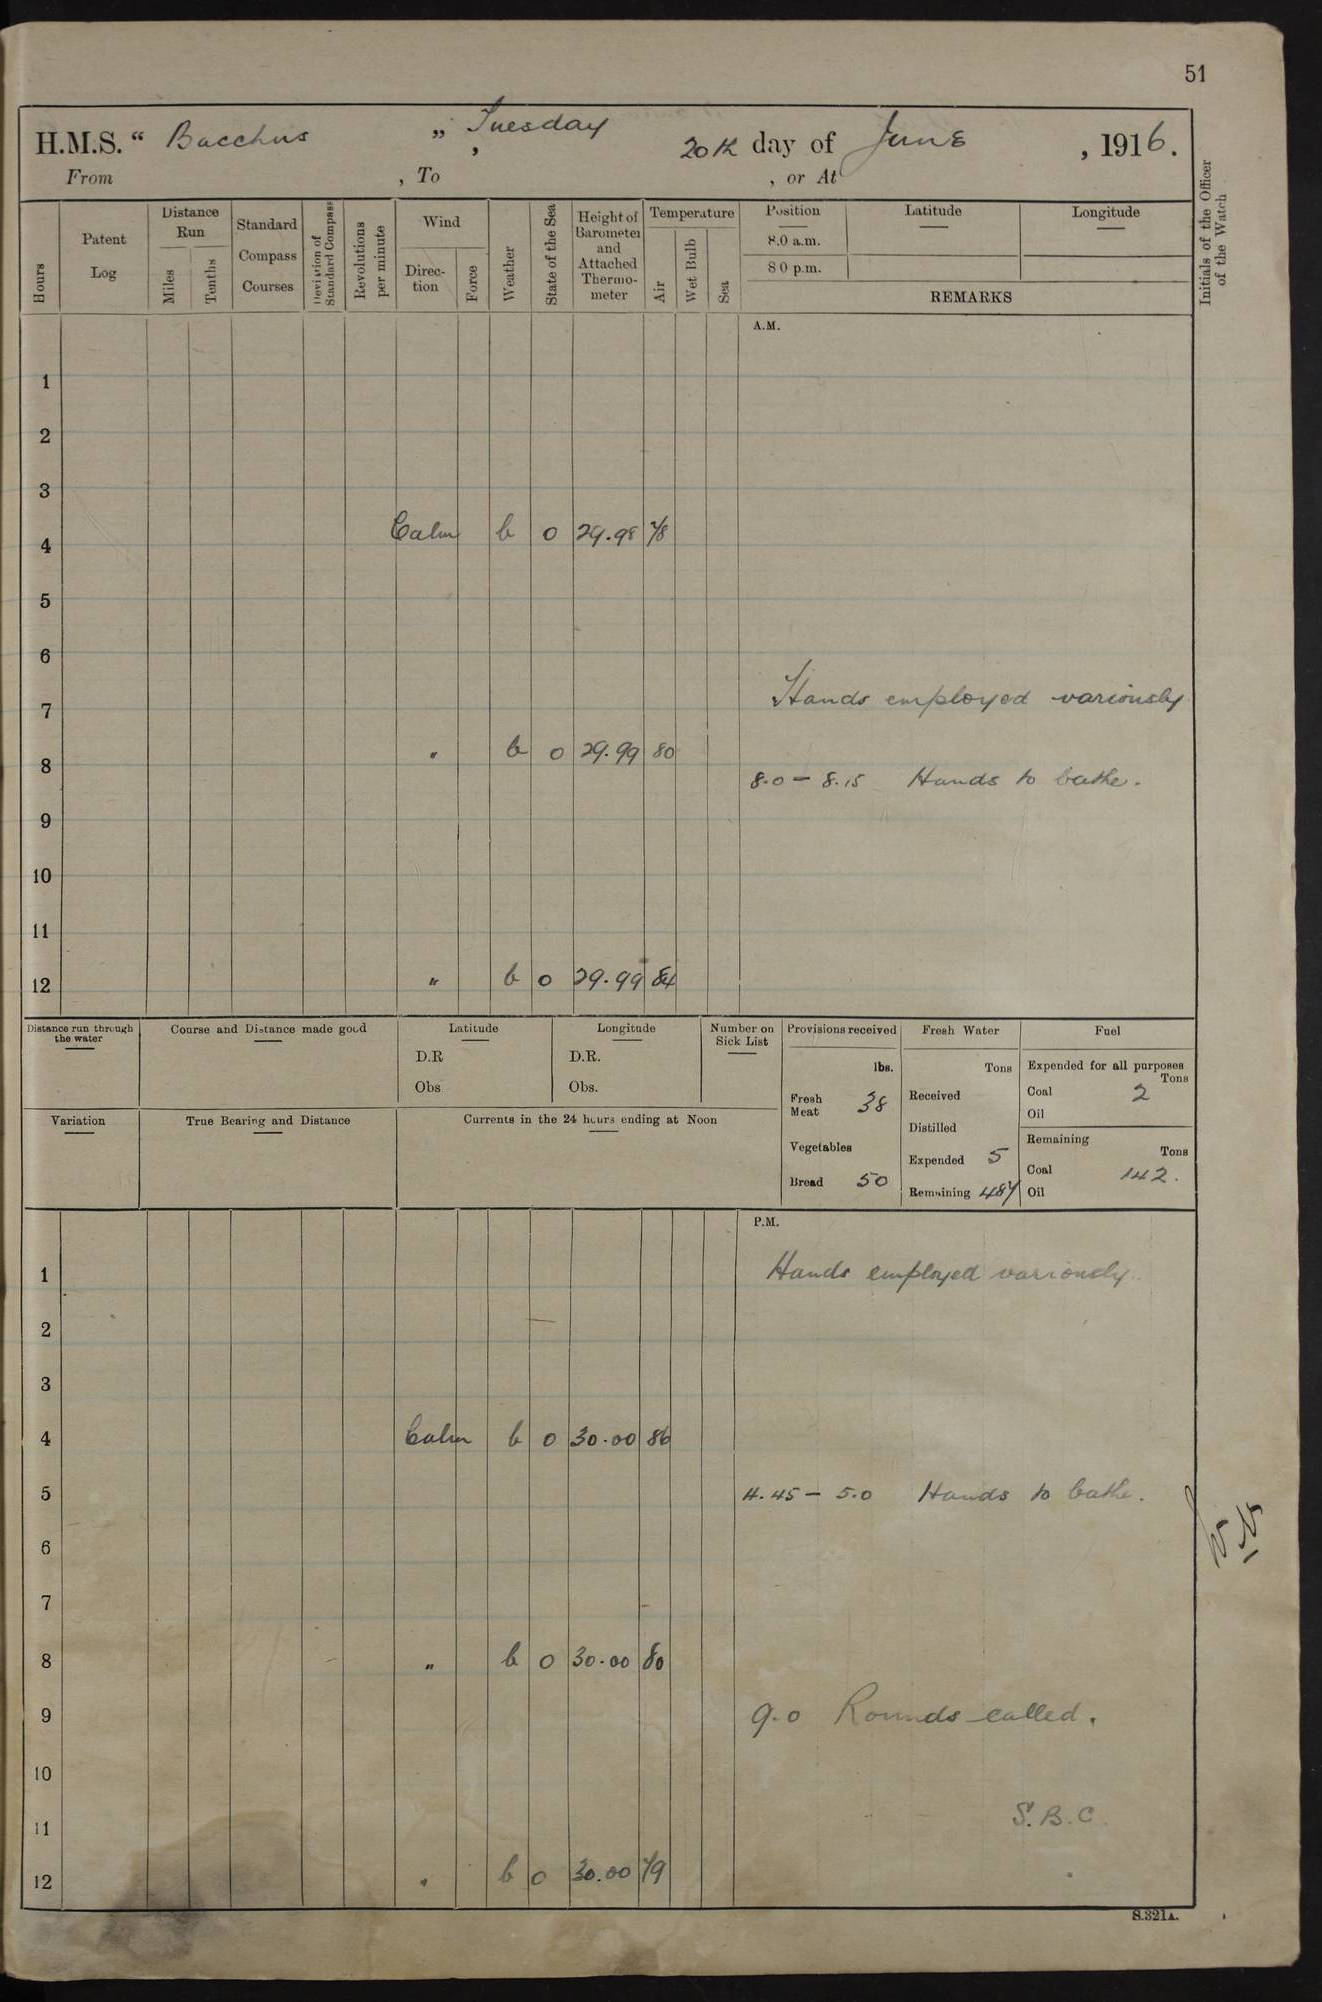 51
H.M.S. “ Bacchus ” , Tuesday 20th day of June , 1916.
From , To , or At
Hours
Patent Log
Distance Run
Miles
Tenths
Standard Compass Courses
Deviation of Standard Compass
Revolutions per minute
Wind
Direc- tion
Force
Weather
State of the Sea
Height of Barometer and Attached Thermo- meter
Temperature
Air
Wet Bulb
Sea
Position Latitude Longitude
8.0 a.m.
8 0 p.m.
REMARKS
Initials of the Officer of the Watch
A.M.
1
2
3
4 Calm b 0 29.98 78
5
6
7 Hands employed variously
8 " b 0 29.99 80
8.0 – 8.15 Hands to bathe.
9
10
11
12 " b 0 29.99 84
Distance run through the water
Course and Distance made good
Latitude
D.R
Obs
Longitude
D.R.
Obs.
Number on Sick List
Variation
True Bearing and Distance
Currents in the 24 hours ending at Noon
Provisions received
lbs.
Fresh Meat 38
Vegetables
Bread 50
Fresh Water
Tons
Received
Distilled
Expended 5
Remaining 487
Fuel
Expended for all purposes
Tons
Coal 2
Oil
Remaining
Tons
Coal 142.
Oil
P.M.
1 Hands employed variously.
2
3
4 Calm b 0 30.00 86
5 4.45 – 5.0 Hands to bathe.
6
7
8 " b 0 30.00 80
9 9.0 Rounds called.
10
11 S.B.C.
12 " b 0 30.00 79
S.321A.